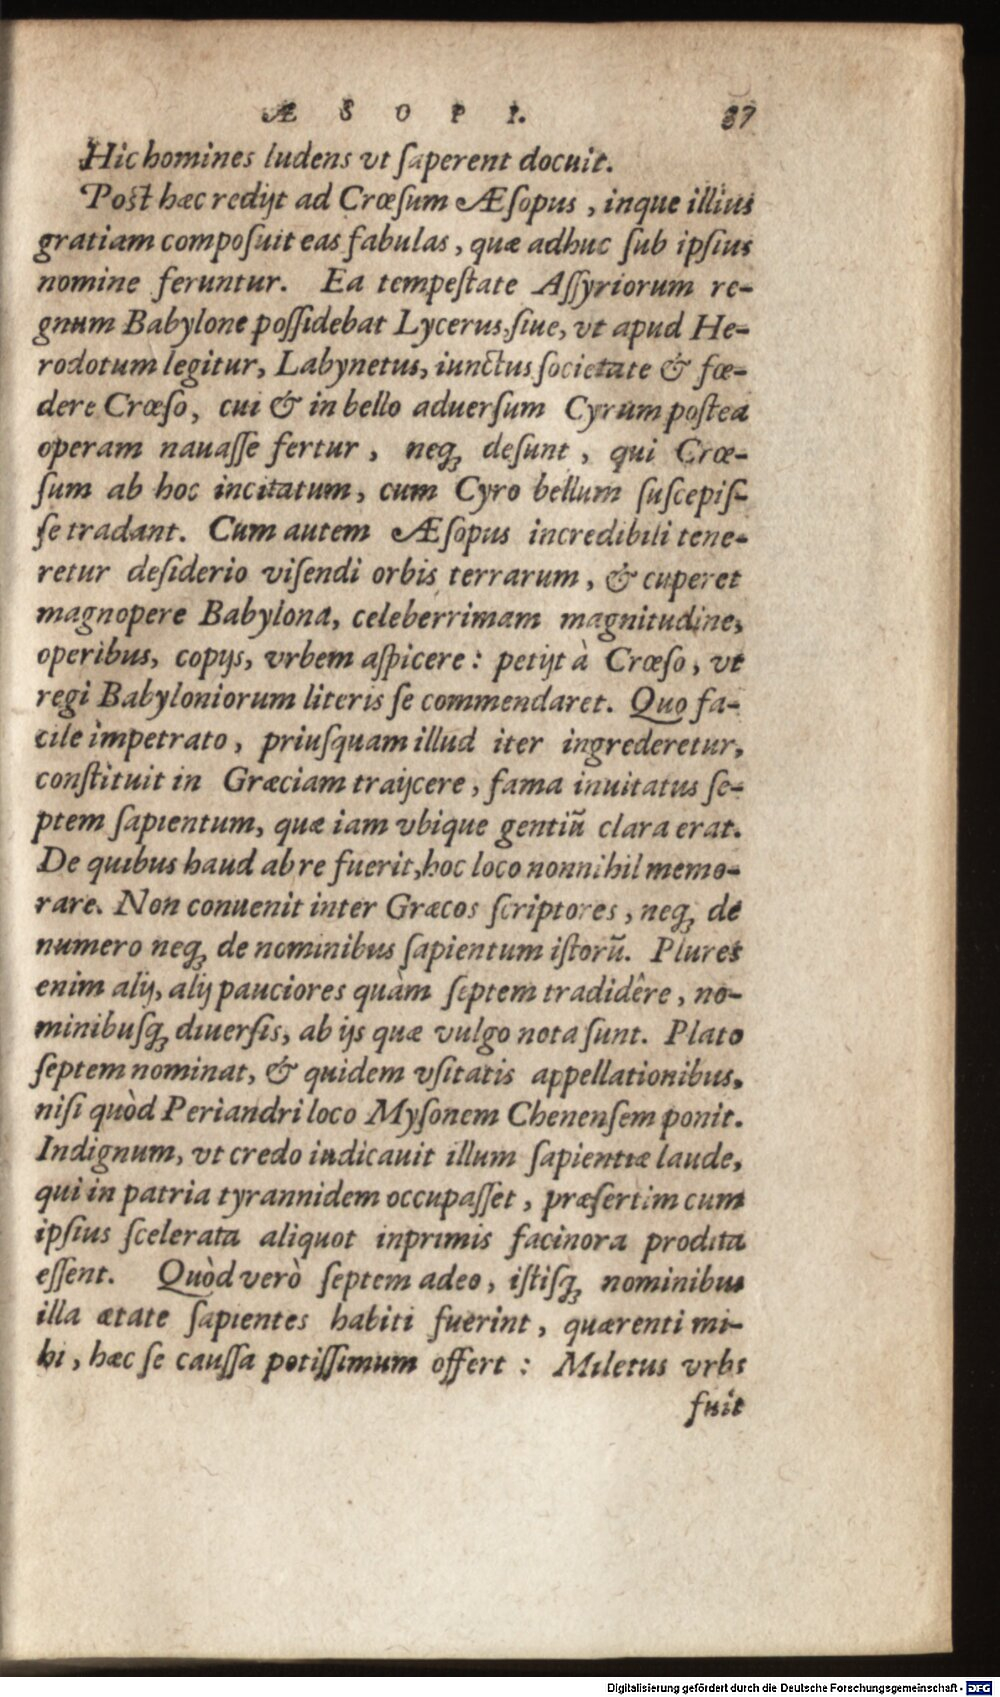 ÆSOPI. 37
Hic homines ludens vt ſaperent docuit.
Post hæc redijt ad Crœſum Æſopus, inque illius
gratiam compoſuit eas fabulas, quæ adhuc ſub ipſius
nomine feruntur. Ea tempeſtate Aſſyriorum re-
gnum Babylone poſſidebat Lycerus, ſiue, vt apud He-
rodotum legitur, Labynetus, iunctus ſocietate & fœ-
dere Crœſo, cui & in bello aduerſum Cyrum poſtea
operam nauaſſe fertur, neq; deſunt, qui Crœ-
ſum ab hoc incitatum, cum Cyro bellum ſuſcepiſ-
ſe tradant. Cum autem Æſopus incredibili tene-
retur deſiderio viſendi orbis terrarum, & cuperet
magnopere Babylona, celeberrimam magnitudine,
operibus, copijs, vrbem aſpicere: petijt à Crœſo, vt
regi Babyloniorum literis ſe commendaret. Quo fa-
cile impetrato, priuſquam illud iter ingrederetur,
conſtituit in Græciam traijcere, fama inuitatus ſe-
ptem ſapientum, quæ iam vbique gentiũ clara erat.
De quibus haud ab re fuerit, hoc loco nonnihil memo-
rare. Non conuenit inter Græcos ſcriptores, neq; de
numero neq; de nominibus ſapientum iſtorũ. Plures
enim alij, alij pauciores quàm ſeptem tradidêre, no-
minibuſq; diuerſis, ab ijs quæ vulgo nota ſunt. Plato
ſeptem nominat, & quidem vſitatis appellationibus,
niſi quòd Periandri loco Myſonem Chenenſem ponit.
Indignum, vt credo iudicauit illum ſapientiæ laude,
qui in patria tyrannidem occupaſſet, præſertim cum
ipſius ſcelerata aliquot inprimis facinora prodita
eſſent. Quòd verò ſeptem adeo, iſtiſq; nominibus
illa ætate ſapientes habiti fuerint, quærenti mi-
hi, hæc ſe cauſſa potiſſimum offert: Miletus vrbs
fuit
Digitalisierung gefördert durch die Deutsche Forschungsgemeinschaft - DFG